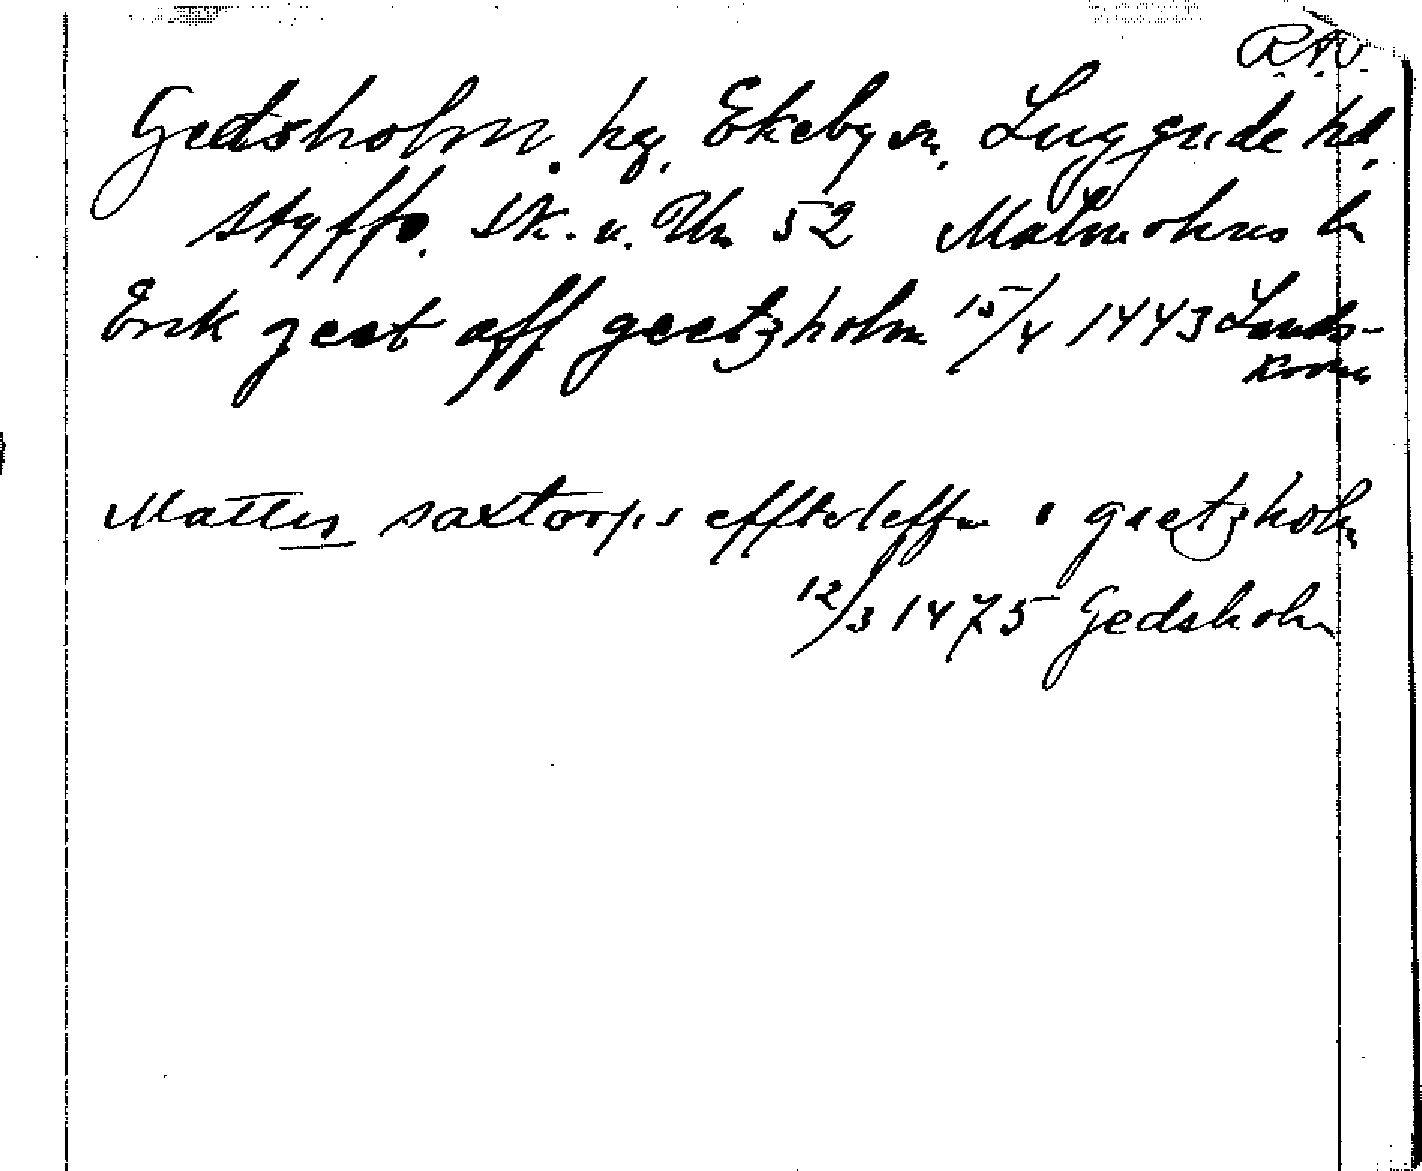 R.A.
Gedsholm. hg, Ekeby sn, Luggude hd,
Styffe. Sk. u. Un 52 Malmöhus ln
Erik geet aff geetzholm 15/4 1443 Lands-
krona
Mattes saxtorps effterleffue i geetzholm
12/3 1475 Gedsholm